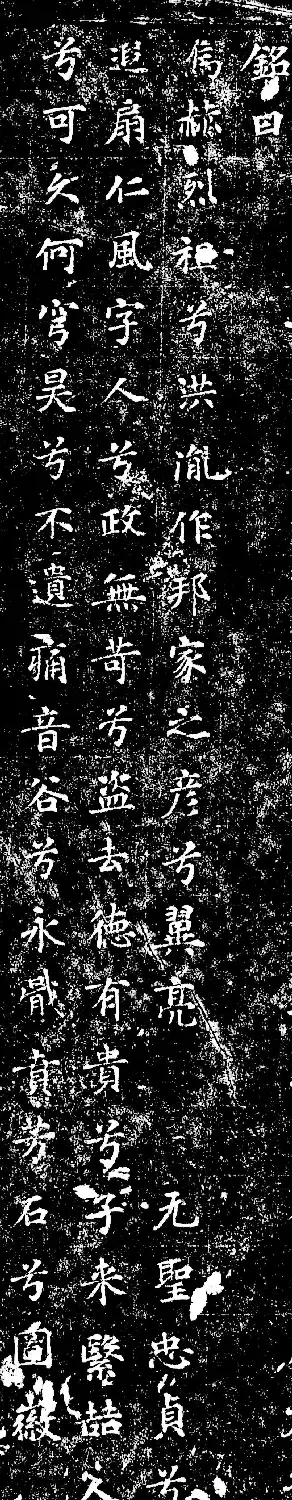 銘曰
儁赫烈祖兮洪胤作邦家之彦兮翼亮无聖忠貞兮
遐扇仁風字人兮政無苛兮盗去德有貴兮子来繄喆人
兮可久何穹昊兮不遺痛音谷兮永骪貞芳石兮圖徽